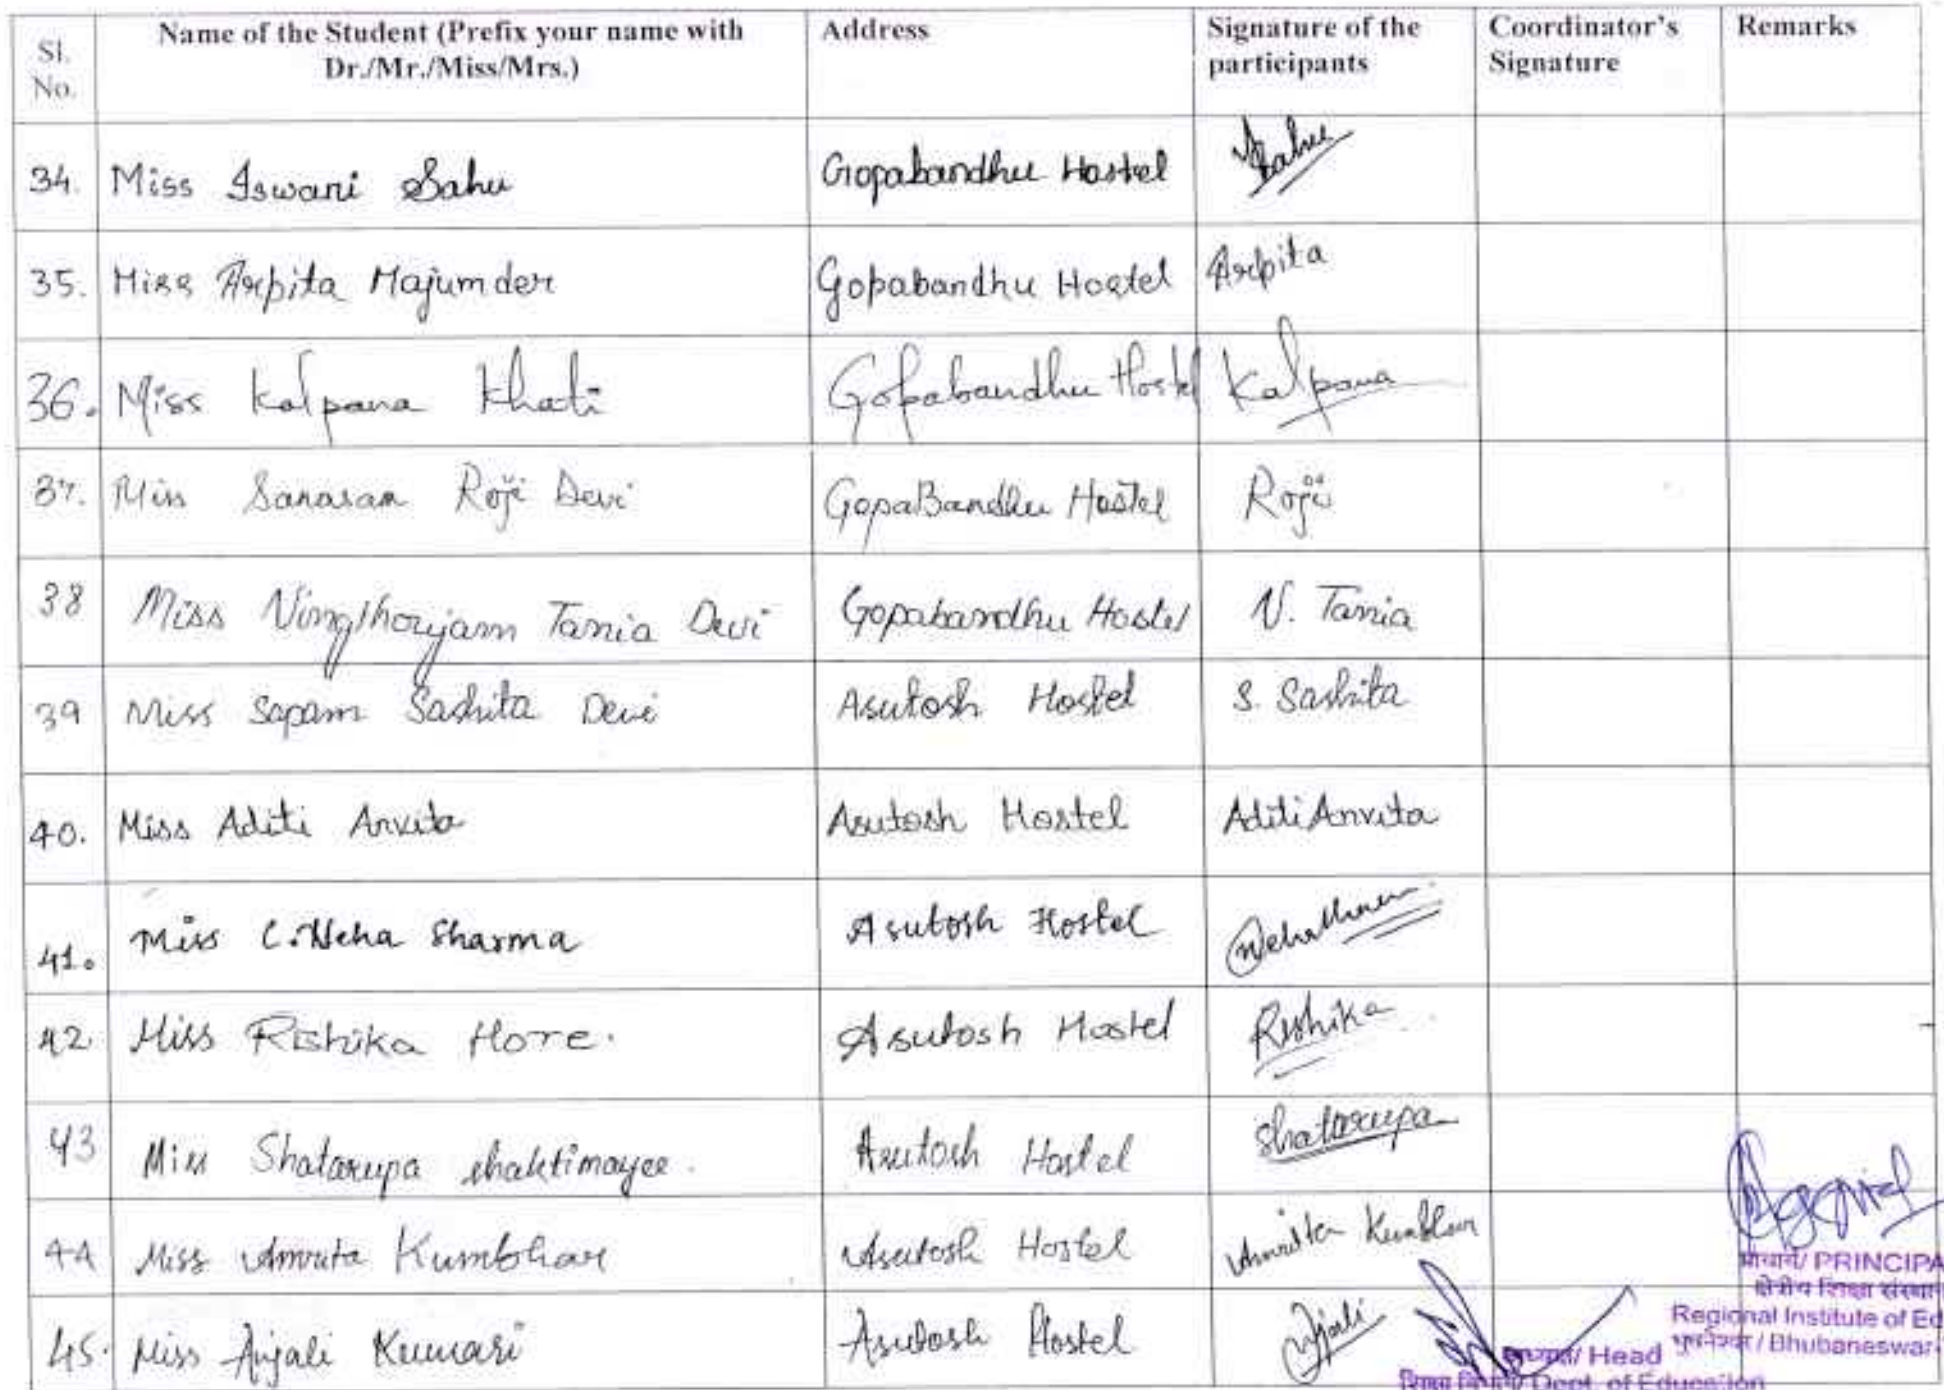 Sl. No. Name of the Student (Prefix your name with Dr./Mr./Miss/Mrs.) Address Signature of the participants Coordinator's Signature Remarks
34. Miss Iswani Sahu Gopabandhu Hostel Sahu
35. Miss Arpita Majumder Gopabandhu Hostel Arpita
36. Miss Kalpana Khati Gopabandhu Hostel Kalpana
37. Miss Sanasam Roji Devi GopaBandhu Hostel Roji
38 Miss Ningthoujam Tania Devi Gopabandhu Hostel N. Tania
39 Miss Sapam Sashita Devi Asutosh Hostel S. Sashita
40. Miss Aditi Anvita Asutosh Hostel Aditi Anvita
41. Miss C. Neha Sharma Asutosh Hostel
42. Miss Rishika Hore. Asutosh Hostel Rishika
43 Miss Shatarupa shaktimayee. Asutosh Hostel Shatarupa
44 Miss Amruta Kumbhar Asutosh Hostel Kumbhar
45. Miss Anjali Kumari Asutosh Hostel Anjali
/ PRINCIPA
क्षेत्रीय शिक्षा संस्थान
Regional Institute of Ed
भुवनेश्वर / Bhubaneswar
/ Head
Dept. of Education